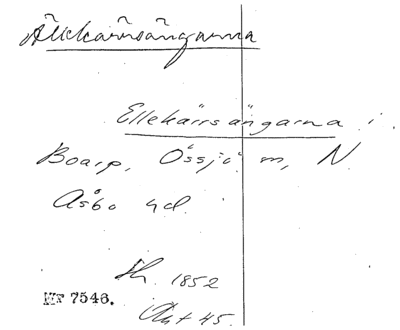 Ällekärrsängarna
Ellekärrsängarna i
Boarp, Össjö sn, N.
Åsbo hd.
Sk. 1852
WF 7546.
Akt 45.